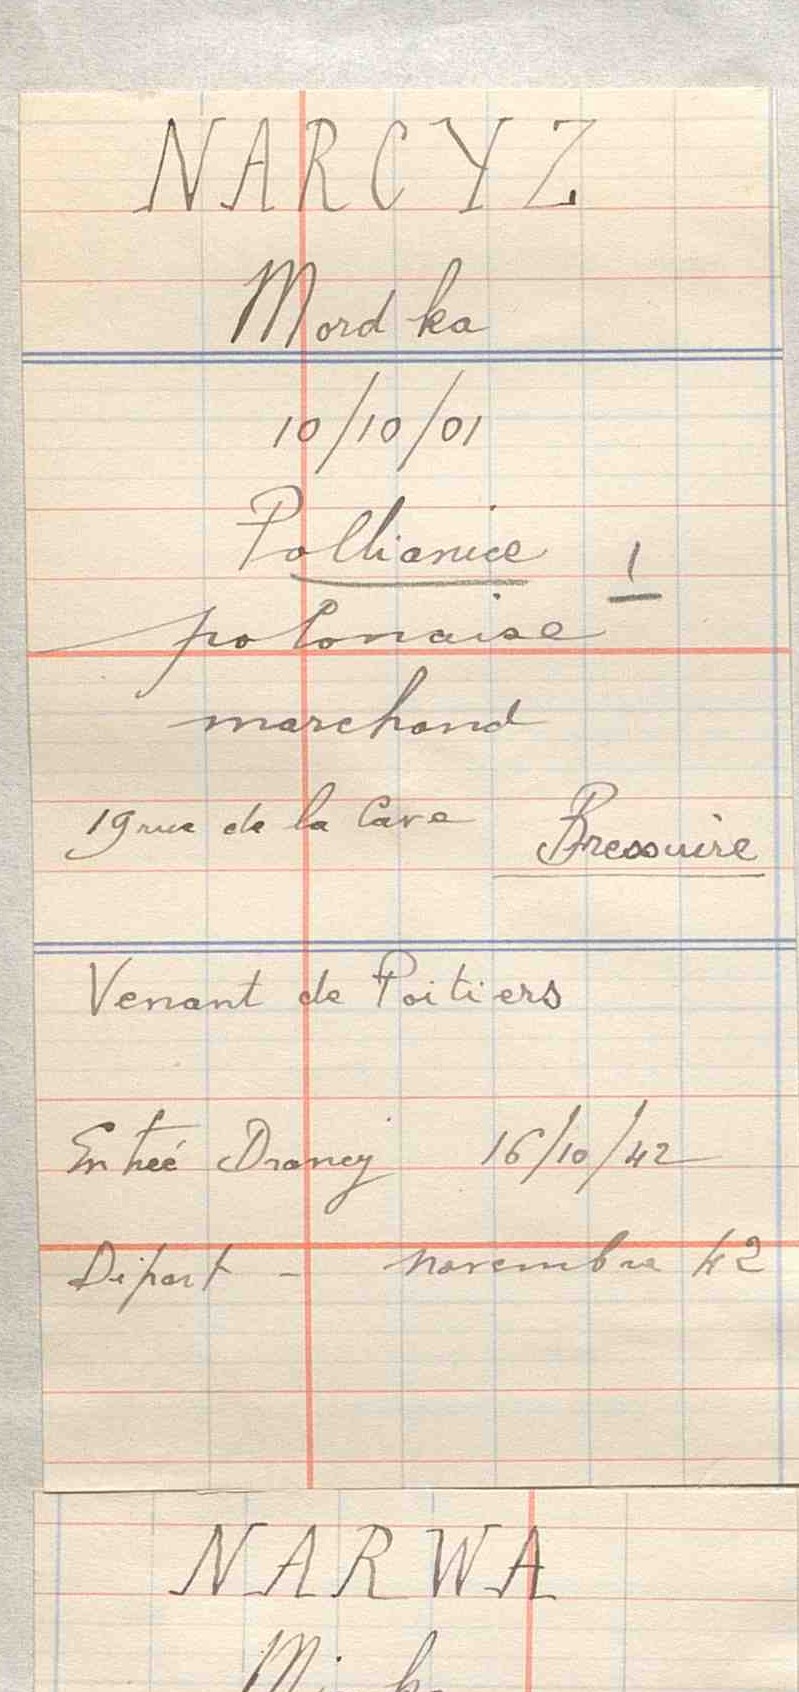 NARCYZ
Mordka
10/10/01
Pollianice
1
polonaise
marchand
19 rue de la Cave Bressuire
Venant de Poitiers
Entrée Drancy 16/10/42
Départ - novembre 42
NARWA